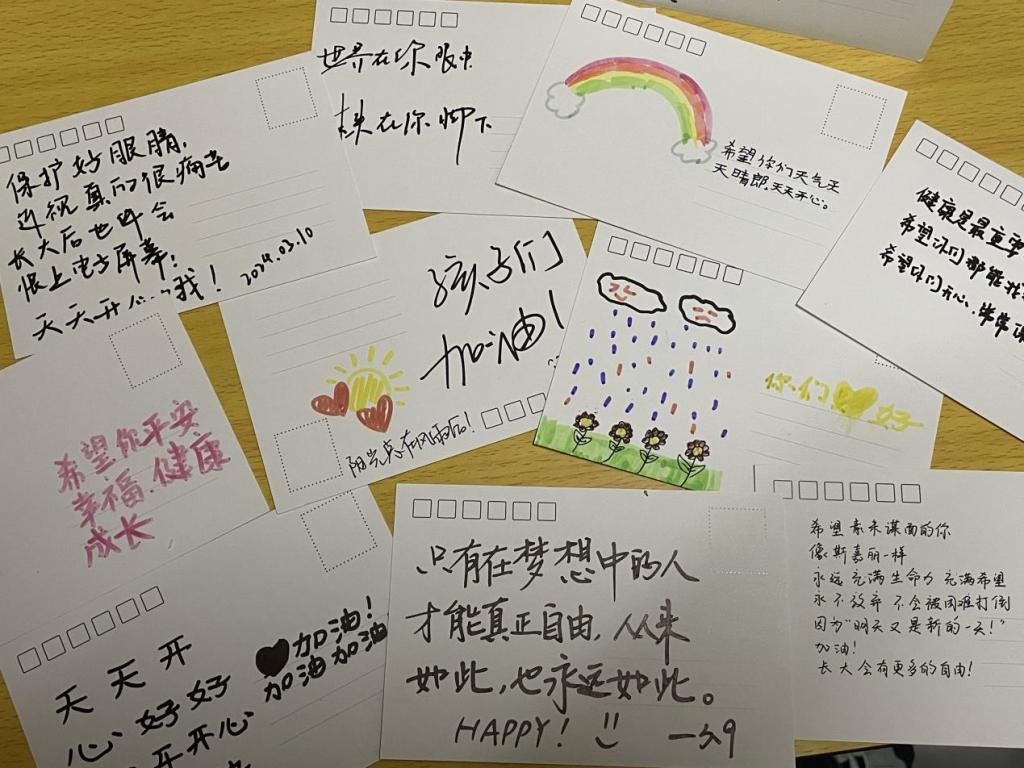 世界在你眼中
未来在你脚下
希望你们天气天
天晴朗,天天开心。
保护好眼睛,
近视真的很痛苦
长大后也许会
恨上电子屏幕!
天天开心
我!
2024.03.10
健康是最重要
希望你们都能
希望你们开心、常常
孩子们
加油!
阳光总在风雨后!
你们好
希望你平安
幸福、健康
成长
只有在梦想中的人
才能真正自由,从来
如此,也永远如此。
HAPPY!
希望素未谋面的你
像斯嘉丽一样
永远充满生命力 充满希望
永不放弃 不会被困难打倒
因为“明天又是新的一天!”
加油!
长大会有更多的自由!
天天开
心、好好
开心
加油!
加油加油